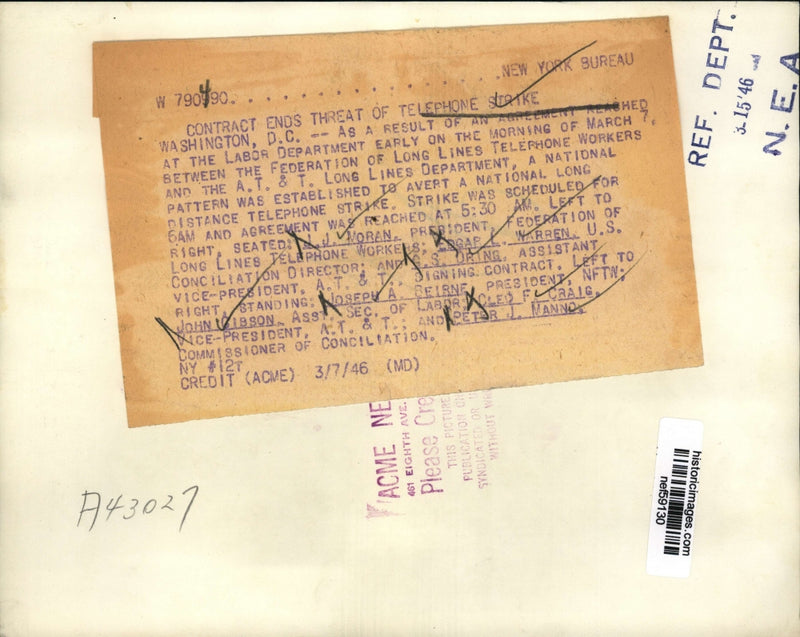 NEW YORK BUREAU
W 790490. . . . . . . . . . . . . . . . . . .
CONTRACT ENDS THREAT OF TELEPHONE STRIKE
WASHINGTON, D.C. -- AS A RESULT OF AN AGREEMENT REACHED
AT THE LABOR DEPARTMENT EARLY ON THE MORNING OF MARCH 7,
BETWEEN THE FEDERATION OF LONG LINES TELEPHONE WORKERS
AND THE A.T. & T. LONG LINES DEPARTMENT, A NATIONAL
PATTERN WAS ESTABLISHED TO AVERT A NATIONAL LONG
DISTANCE TELEPHONE STRIKE. STRIKE WAS SCHEDULED FOR
6AM AND AGREEMENT WAS REACHED AT 5:30 AM. LEFT TO
RIGHT, SEATED: J. J. MORAN, PRESIDENT, FEDERATION OF
LONG LINES TELEPHONE WORKERS; EDGAR L. WARREN, U.S.
CONCILIATION DIRECTOR; AND G.S. DRING, ASSISTANT
VICE-PRESIDENT, A.T. & T., SIGNING CONTRACT. LEFT TO
RIGHT, STANDING: JOSEPH A. BEIRNE, PRESIDENT, NFTW;
JOHN GIBSON, ASST. SEC. OF LABOR; CLEO F. CRAIG,
VICE-PRESIDENT, A.T. & T.; AND PETER J. MANNO,
COMMISSIONER OF CONCILIATION.
NY #12T
CREDIT (ACME) 3/7/46 (MD)
REF. DEPT.
3-15'46
N.E.A
ACME NE
461 EIGHTH AVE.
Please Cre
THIS PICTURE
PUBLICATION ON
SYNDICATED OR
WITHOUT
A43027
historicimages.com
nef59130